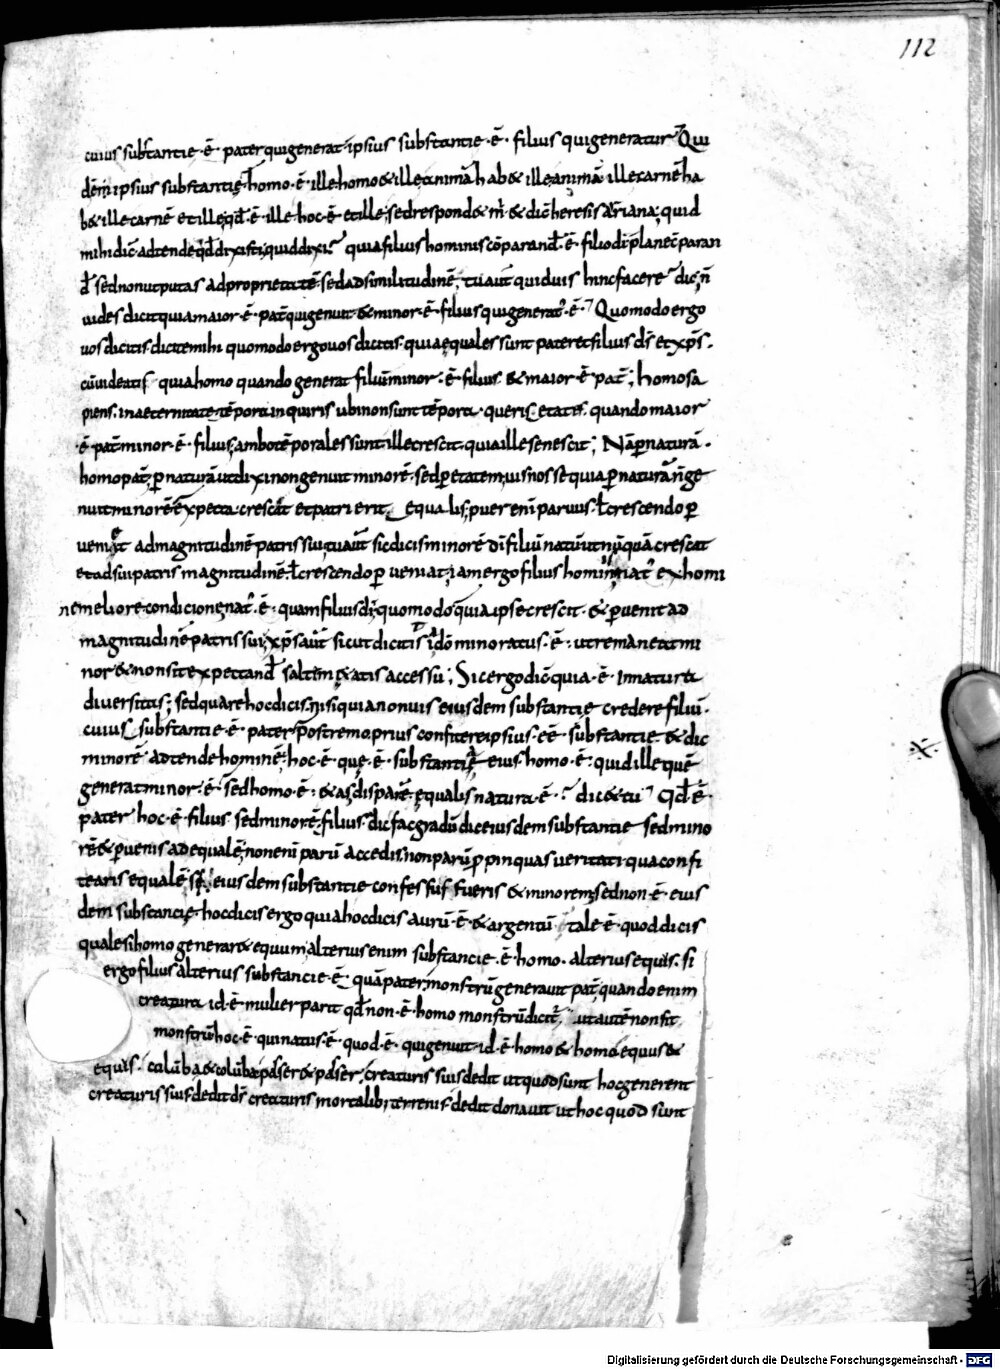 112
cuius substantie·ē· pater qui generat ipsius substantie·ē· filius qui generatur Qui
dēm ipsius substantię homo·ē· ille homo & ille animā hab& ille animā ille carnē ha
b& ille carnē et ille qđ·ē· ille hoc·ē· et ille; sed respond& m̄ & dic̄ heresis arriana; quid
mihi dic̄ adtende qđ dixisti; quid dixi? quia filius hominis cōparand̄·ē· filio dī plane cparan
d̄ sed non ut putas ad proprietatē sed ad similitudinē, tu aūt quid uis hinc facere dic n̄
uides dicit quia maior·ē· pat̄ qui genuit & minor·ē· filius qui generat·ē· Quomodo ergo
uos dicitis dicite mihi quomodo ergo uos dicitis quia ęquales sunt pater et filius ds̄ et xp̄s.
cū uideatis quia homo quando generat filiū minor·ē· filius & maior·ē· pat̄; homo sa
piens. in aeternitate tēpora inquiris ubi non sunt tēpora queris etates. quando maior
·ē· pat̄ minor·ē· filius; ambo tēporales sunt ille crescit quia ille senescit; Nā per naturā.
homo pat̄ p naturā ut dixi non genuit minorē. sed p etatem; uis nosse quia p naturā n̄ ge
nuit minorē expecta crescat et patri erit ęqualis; puer enī paruus ł crescendo p
ueniat ad magnitudinē patris sui; tu aūt sic dicis minorē dī filiū natū ut nūquā crescat
et ad sui patris magnitudinē ł crescendo p ueniat; iam ergo filius homi nat' ex homi
ne meliore condicione nat'·ē· quam filius dī; quomodo quia ipse crescit. & puenit ad
magnitudinē patris sui; xp̄s aūt sicut dicitis ido minoratus·ē· ut remaneat mi
nor & non sit expectand̄ saltem ętatis accessū; Sic ergo dic̄ quia·ē· in natura
diuersitas; sed quare hoc dicis nisi quia non uis eiusdem substantie credere filiū.
cuius substantie·ē· pater postremo prius confitere ipsius·eē· substantie & dic
minorē adtende hominē hoc·ē· quę·ē· substantia eius homo·ē· quid ille quē
generat minor·ē· sed homo·ē· & as disparē. ęqualis natura·ē· dic & tu Qđ·ē·
pater hoc·ē· filius sed minor·ē· filius dic fac gradū dic eiusdem substantie sed mino
rē & puenis ad equalē non enī parū accedis non parū ppinquas ueritati qua confi
tearis equalē si eiusdem substantie confessus fueris & minorem; sed non·ē· eius
dem substancię hoc dicis ergo quia hoc dicis aurū·ē· & argentū tale·ē· quod dicis
quale si homo generar& equum alterius enim substancie·ē· homo. alterius equus. si
ergo filius alterius substancie·ē· quā pater monstrū generauit pat̄; quando enim
creatura id·ē· mulier parit qđ non·ē· homo monstrū dicit' ut autē non sit
monstrū hoc·ē· qui natus·ē· quod·ē· qui genuit id·ē· homo & homo equus &
equus. colūba & colūba passer & passer, creaturis suis dedit ut quod sunt hoc generent
creaturis suis dedit ds̄ creaturis mortalib; terrenis dedit donauit ut hoc quod sunt
Digitalisierung gefördert durch die Deutsche Forschungsgemeinschaft - DFG